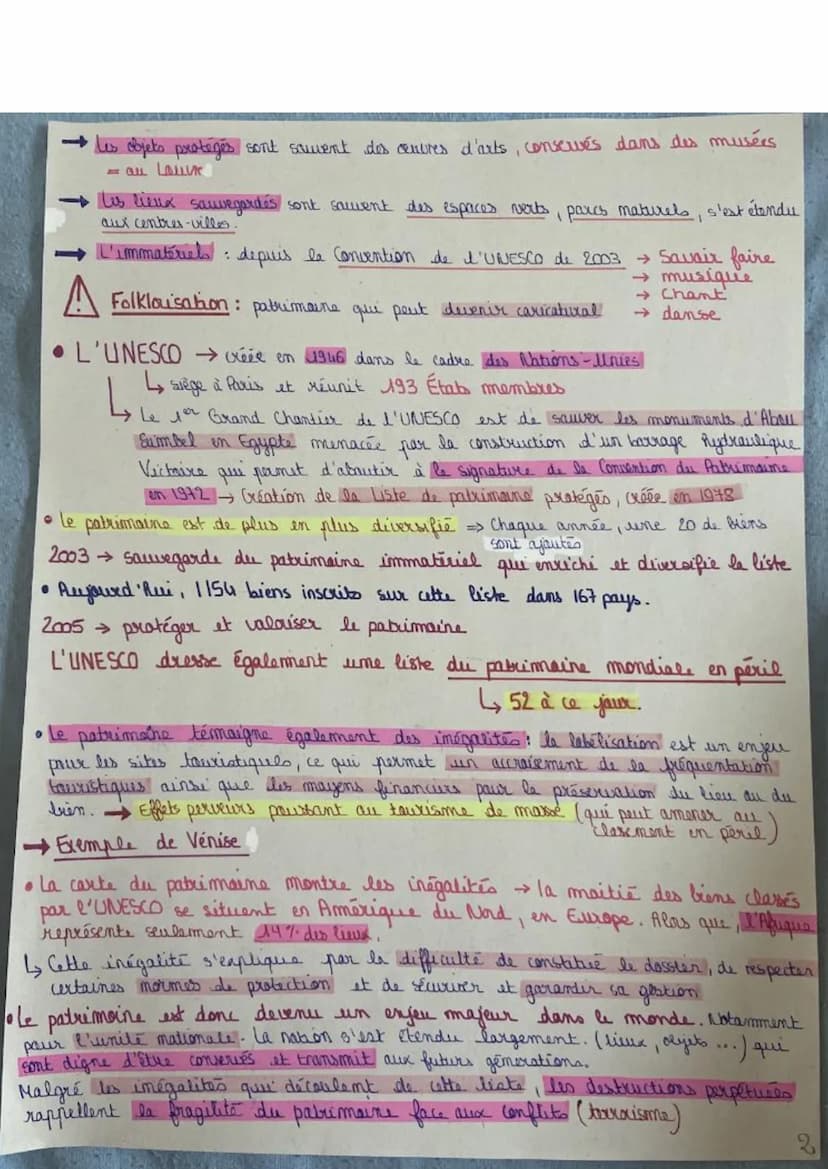 → Les objets protégés sont souvent des œuvres d'arts, conservés dans des musées
= au Louvre
→ Les lieux sauvegardés sont souvent des espaces verts, parcs naturels, s'est étendu
aux centres-villes.
→ L'immatériels : depuis la Convention de l'UNESCO de 2003 → Savoir faire
→ musique
→ Chant
→ danse
! Folklorisation : patrimoine qui peut devenir caricatural
• L'UNESCO → créée en 1946 dans le cadre des Nations-Unies
↳ siège à Paris et réunit 193 États membres
↳ Le 1er Grand Chantier de l'UNESCO est de sauver les monuments d'Abou
Simbel en Egypte menacée par la construction d'un barrage hydraulique
Victoire qui permit d'aboutir à la signature de la Convention du Patrimoine
en 1972 → Création de la Liste de patrimoine protégés, créée en 1978
• le patrimoine est de plus en plus diversifié => Chaque année, une 20 de biens
sont ajoutés
2003 → sauvegarde du patrimoine immatériel qui enrichi et diversifie la liste
• Aujourd'hui, 1154 biens inscrits sur cette liste dans 167 pays.
2005 → protéger et valoriser le patrimoine
L'UNESCO dresse également une liste du patrimoine mondiale en péril
↳ 52 à ce jour.
• Le patrimoine témoigne également des inégalités : la labélisation est un enjeu
pour les sites touristiques, ce qui permet un accroisement de la fréquentation
touristiques ainsi que des moyens financiers pour la préservation du lieu ou du
bien. → Effets perveurs poussant au tourisme de masse (qui peut amener au
classement en péril)
→ Exemple de Vénise
• La carte du patrimoine montre les inégalités → la moitié des biens classés
par l'UNESCO se situent en Amérique du Nord, en Europe. Alors que, l'Afrique
représente seulement 14% des lieux.
↳ Cette inégalité s'explique par la difficulté de constitué le dossier, de respecter
certaines normes de protection et de sécuriser et garantir sa gestion
• Le patrimoine est donc devenu un enjeu majeur dans le monde. Notamment
pour l'unité nationale. La nation s'est étendu largement. (lieux, objets ...) qui
sont digne d'être conservés et transmit aux futurs générations.
Malgré les inégalités qui découlent de cette liste, les destructions perpétuées
rappellent la fragilité du patrimoine face aux conflits (terrorisme)
2